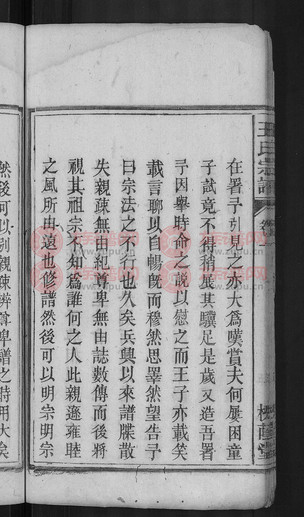 在署予引見之亦大為嘆賞夫何屢困童
子試竟不得稍展其驥足是歲又造吾署
予因舉時命之說以慰之而王子亦載笑
載言聊以自暢既而穆然思睪然望告予
曰宗法之不行也久矣兵興以來譜牒散
失親疎無由和尊卑無由誌數傳而後將
視其祖宗不知為誰何之人此親遜雍睦
之風所由遠也修譜然後可以明宗明宗
然後可以別親疎辨尊卑譜之時用大矣
王氏宗譜